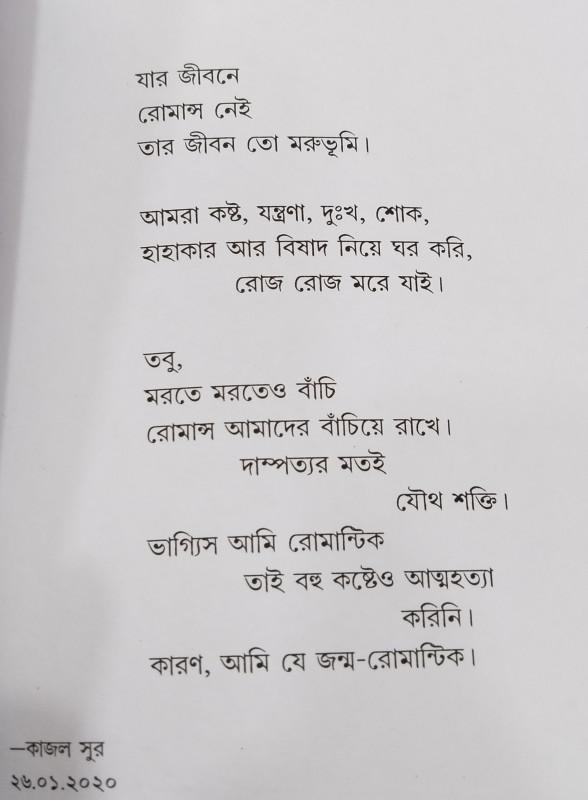 যার জীবনে
রোমান্স নেই
তার জীবন তো মরুভূমি।
আমরা কষ্ট, যন্ত্রণা, দুঃখ, শোক,
হাহাকার আর বিষাদ নিয়ে ঘর করি,
রোজ রোজ মরে যাই।
তবু,
মরতে মরতেও বাঁচি
রোমান্স আমাদের বাঁচিয়ে রাখে।
দাম্পত্যর মতই
যৌথ শক্তি।
ভাগ্যিস আমি রোমান্টিক
তাই বহু কষ্টেও আত্মহত্যা
করিনি।
কারণ, আমি যে জন্ম-রোমান্টিক।
—কাজল সুর
২৬.০১.২০২০